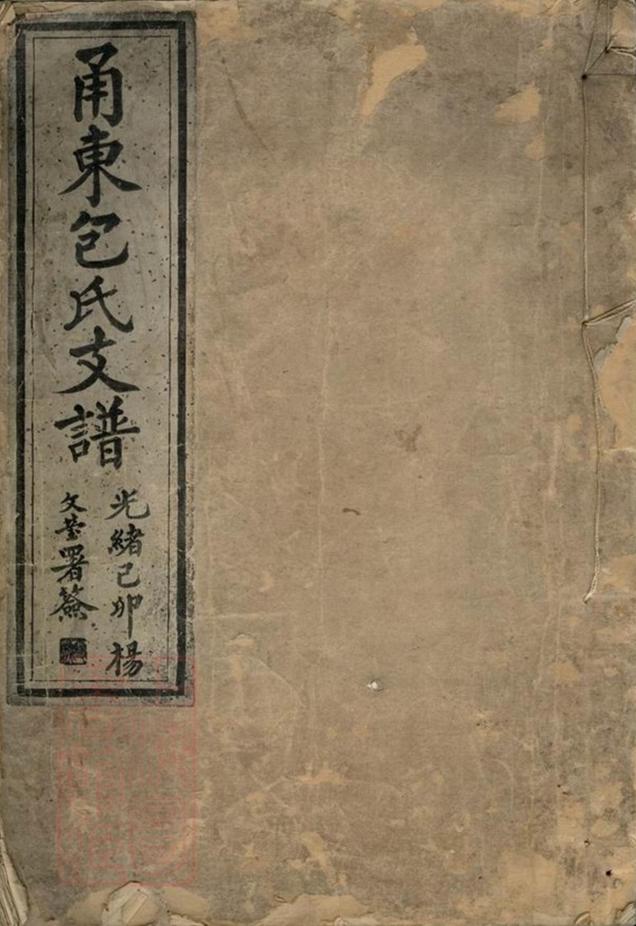 甬東包氏支譜
光緒己卯楊
文瑩署簽